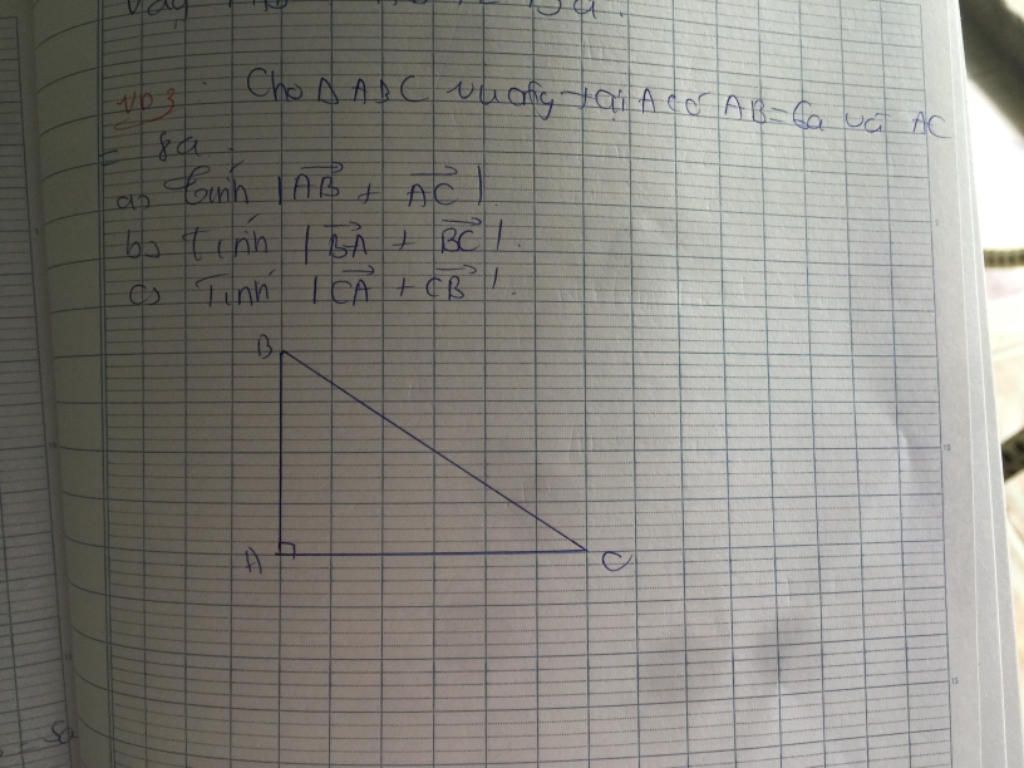 VD3: Cho Δ ABC vuông tại A có AB=6a và AC
= 8a.
a) Tính |AB + AC|.
b) Tính |BA + BC|.
c) Tính |CA + CB|.
B
A
C